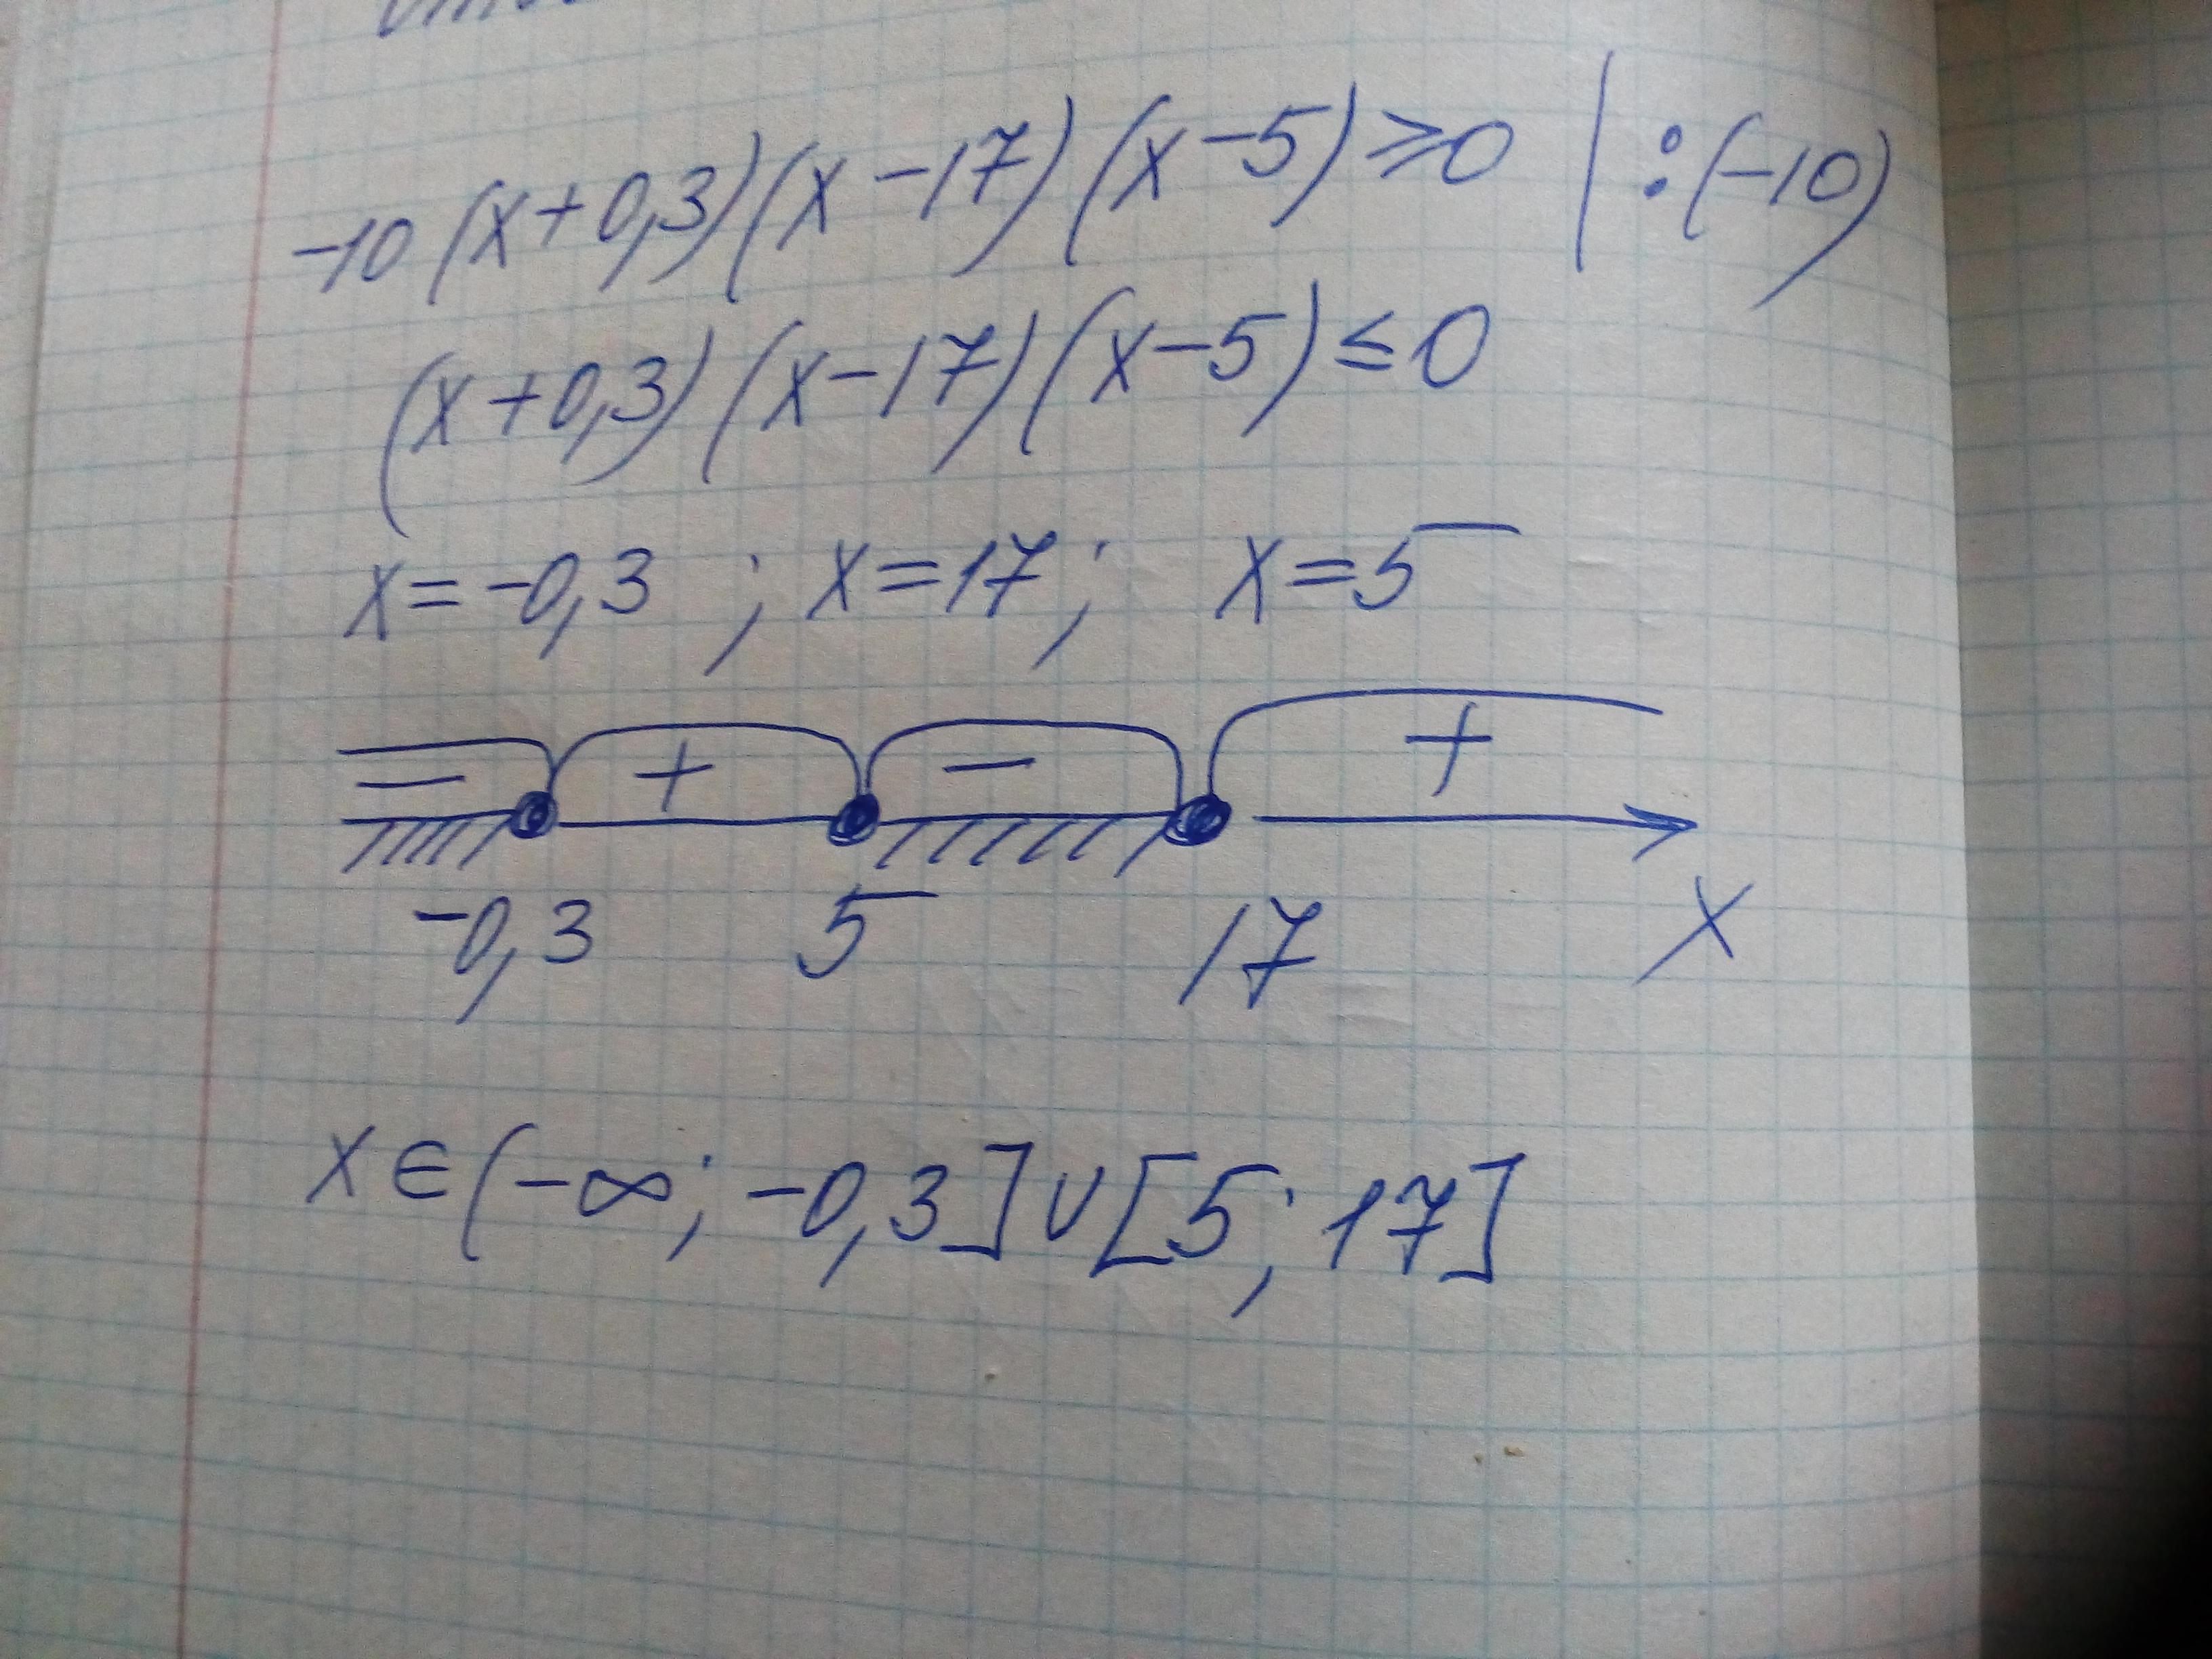 -10(x+0,3)(x-17)(x-5)≥0 | :(-10)
(x+0,3)(x-17)(x-5)≤0
x=-0,3 ; x=17; x=5
- + - +
-0,3 5 17 x
x∈(-∞; -0,3]∪[5; 17]